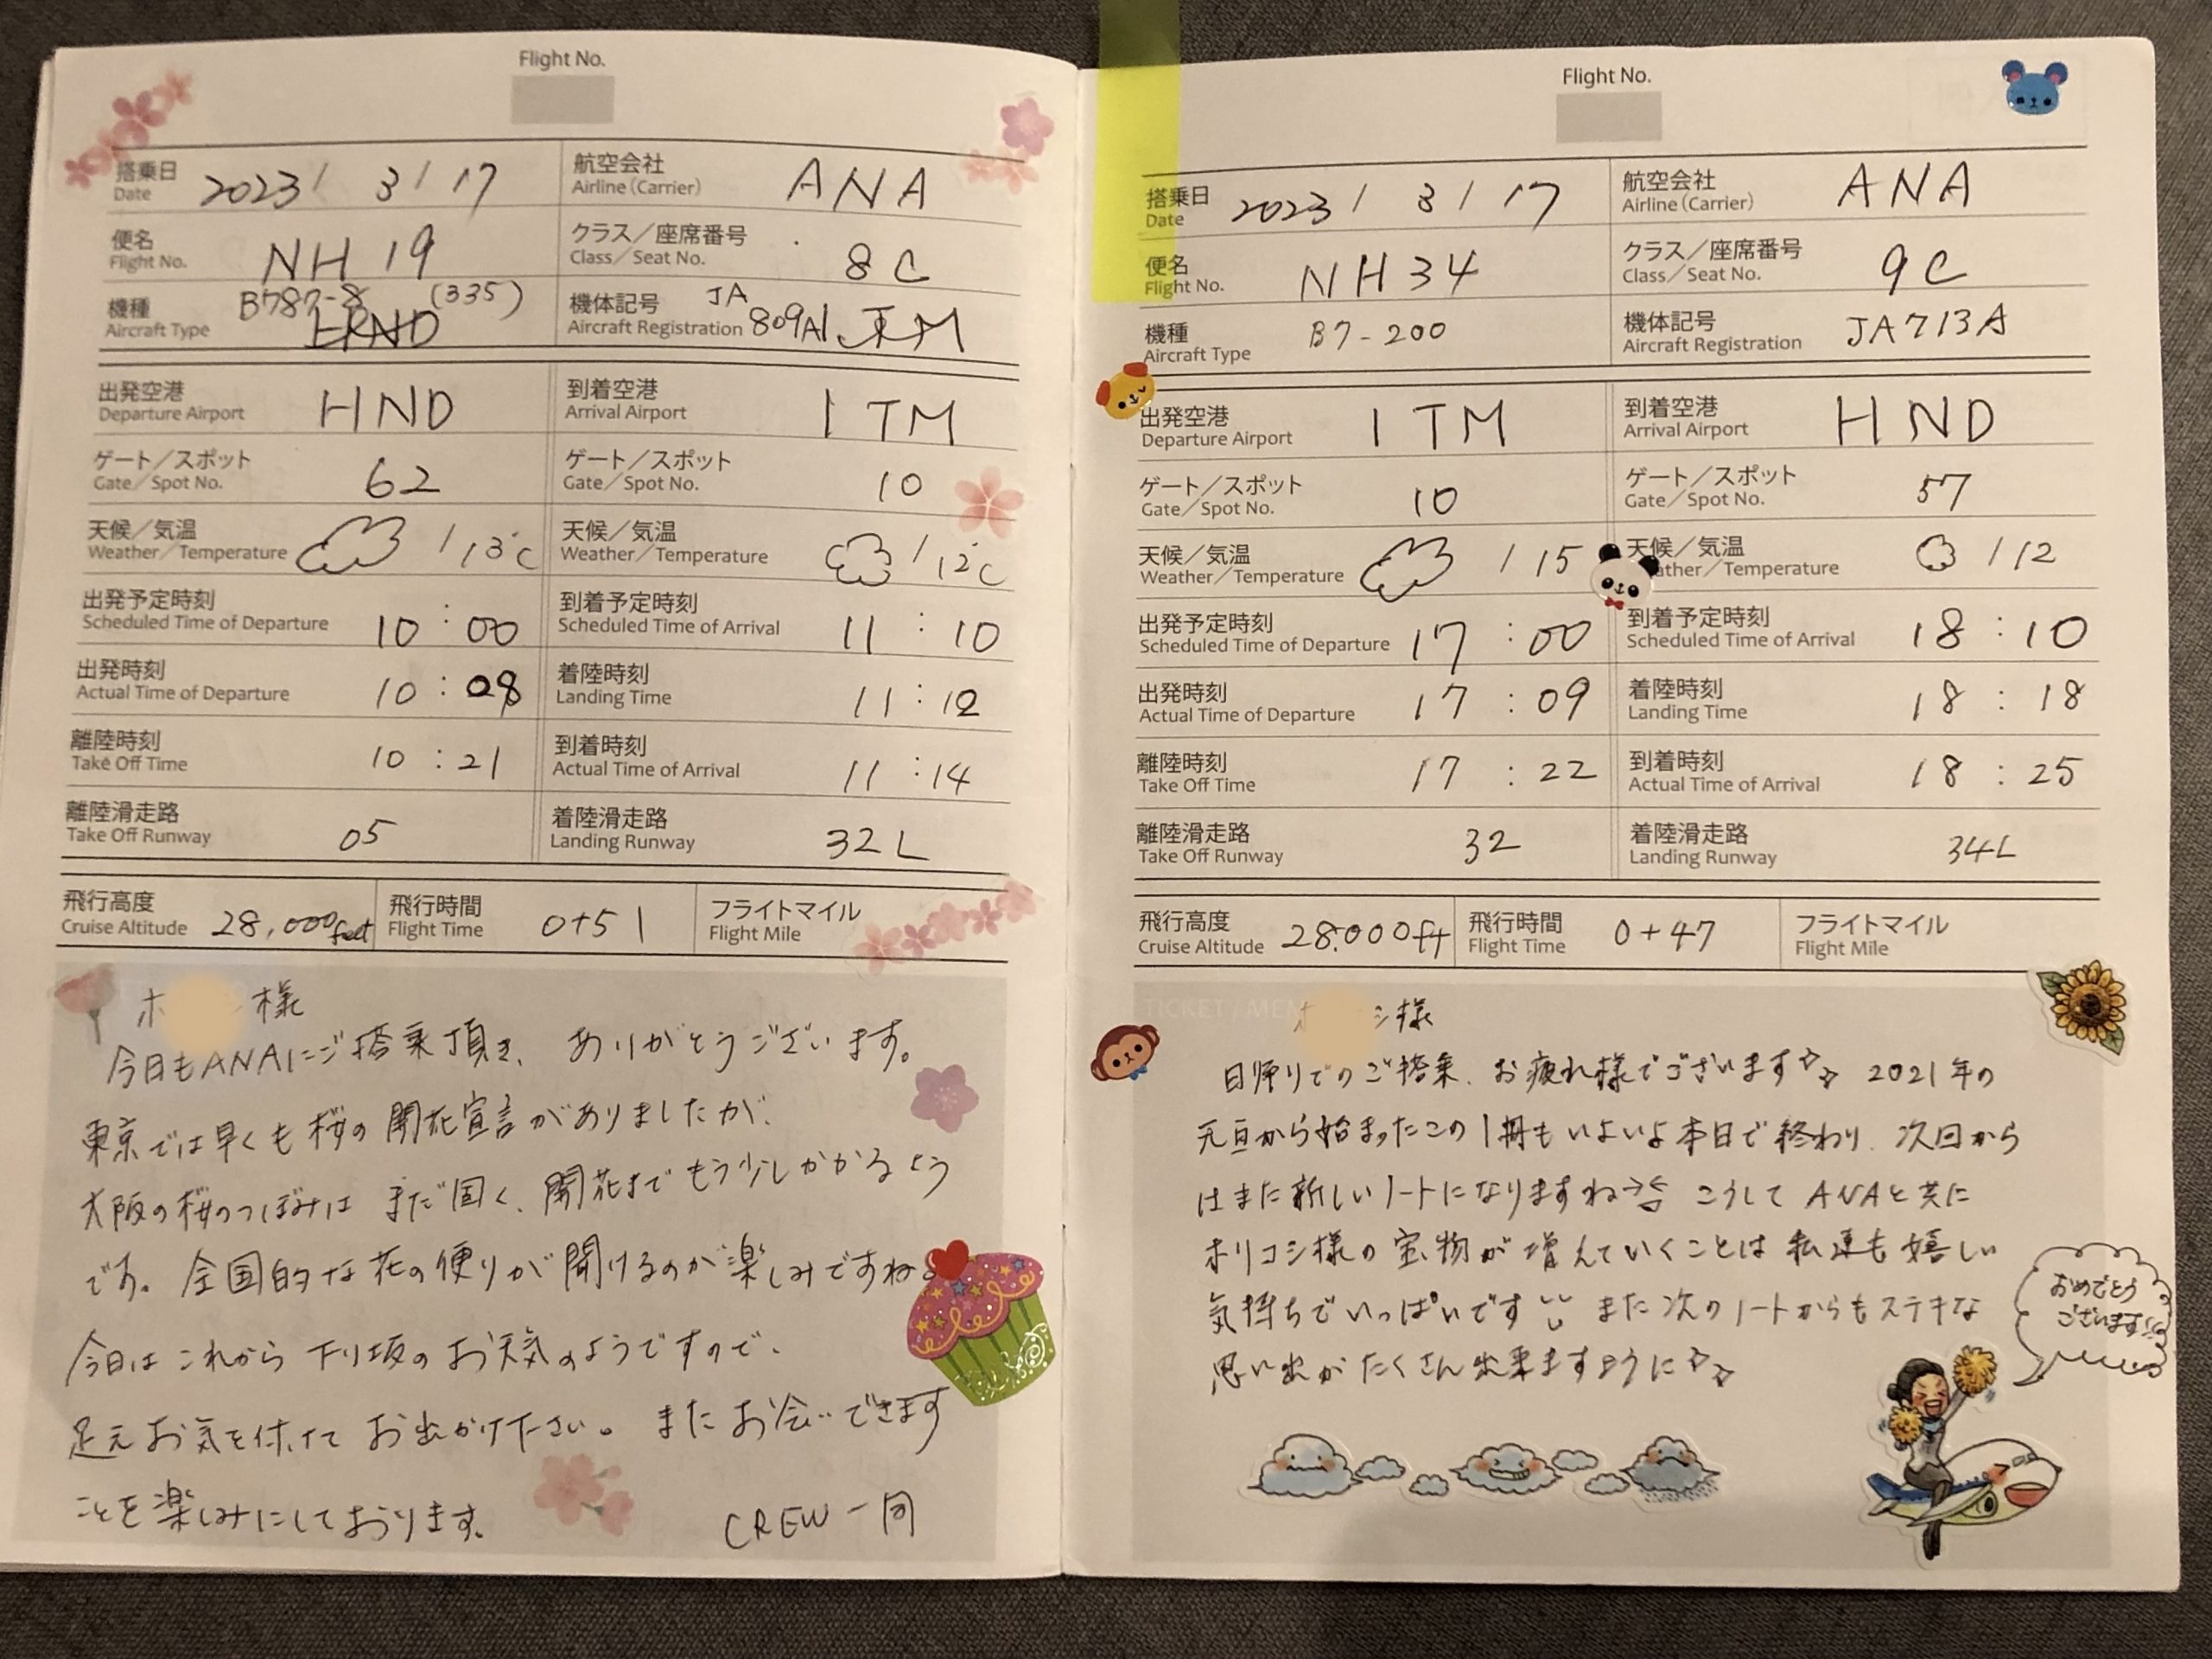 Flight No.
搭乗日 2023/ 3/ 17 航空会社 ANA
Date Airline(Carrier)
便名 NH 19 クラス/座席番号 8C
Flight No. Class/Seat No.
機種 B787-8 (335) 機体記号 JA 809A
Aircraft Type HND Aircraft Registration ITM
出発空港 HND 到着空港 ITM
Departure Airport Arrival Airport
ゲート/スポット 62 ゲート/スポット 10
Gate/Spot No. Gate/Spot No.
天候/気温 /13℃ 天候/気温 /12℃
Weather/Temperature Weather/Temperature
出発予定時刻 10:00 到着予定時刻 11:10
Scheduled Time of Departure Scheduled Time of Arrival
出発時刻 10:08 着陸時刻 11:12
Actual Time of Departure Landing Time
離陸時刻 10:21 到着時刻 11:14
Take Off Time Actual Time of Arrival
離陸滑走路 05 着陸滑走路 32L
Take Off Runway Landing Runway
飛行高度 28,000feet 飛行時間 0+51 フライトマイル
Cruise Altitude Flight Time Flight Mile
ホ 様
今日もANAにご搭乗頂き、ありがとうございます。
東京では早くも桜の開花宣言がありましたが、
大阪の桜のつぼみは まだ固く、開花まで もう少しかかるよう
です。全国的な花の便りが聞けるのが楽しみですね。
今日は これから 下り坂の お天気のようですので、
足元お気を付けて お出かけ下さい。 またお会いできます
ことを楽しみにしております。
CREW一同
Flight No.
搭乗日 2023/ 3/ 17 航空会社 ANA
Date Airline(Carrier)
便名 NH34 クラス/座席番号 9C
Flight No. Class/Seat No.
機種 B7-200 機体記号 JA713A
Aircraft Type Aircraft Registration
出発空港 ITM 到着空港 HND
Departure Airport Arrival Airport
ゲート/スポット 10 ゲート/スポット 57
Gate/Spot No. Gate/Spot No.
天候/気温 /15 天候/気温 /12
Weather/Temperature ather/Temperature
出発予定時刻 17:00 到着予定時刻 18:10
Scheduled Time of Departure Scheduled Time of Arrival
出発時刻 17:09 着陸時刻 18:18
Actual Time of Departure Landing Time
離陸時刻 17:22 到着時刻 18:25
Take Off Time Actual Time of Arrival
離陸滑走路 32 着陸滑走路 34L
Take Off Runway Landing Runway
飛行高度 28.000ft 飛行時間 0+47 フライトマイル
Cruise Altitude Flight Time Flight Mile
TICKET / MEM
シ様
日帰りでのご搭乗、お疲れ様でございます☆☆ 2021年の
元旦から始まったこの1冊もいよいよ本日で終わり、次回から
はまた新しいノートになりますね こうして ANAと共に
ホリコシ様の宝物が増えていくことは 私達も嬉しい
気持ちでいっぱいです また次のノートからもステキな
思い出がたくさん出来ますように☆☆
おめでとう
ございます!!